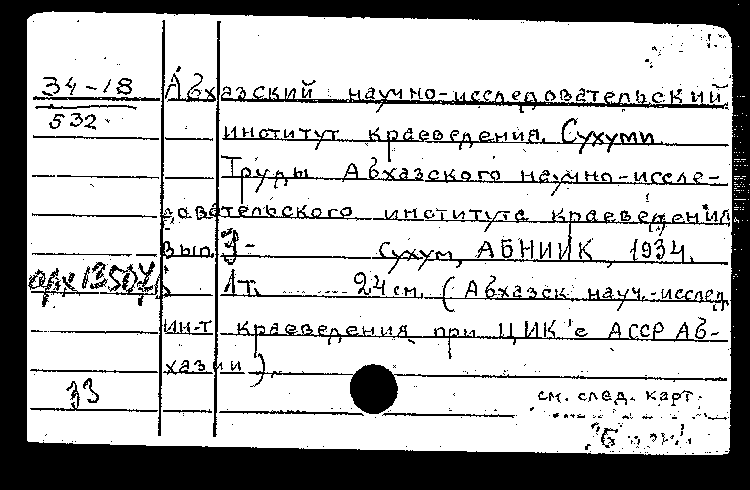 34-18 Абхазский научно-исследовательский
532 институт краеведения. Сухуми
Труды Абхазского научно-иссле-
довательского института краеведения
Вып. 3- Сухум, АБНИИК, 1934.
1т. 24 см. (Абхазск. науч.-исслед.
ин-т краеведения при ЦИК'е АССР Аб-
хазии).
33
см. след. карт.